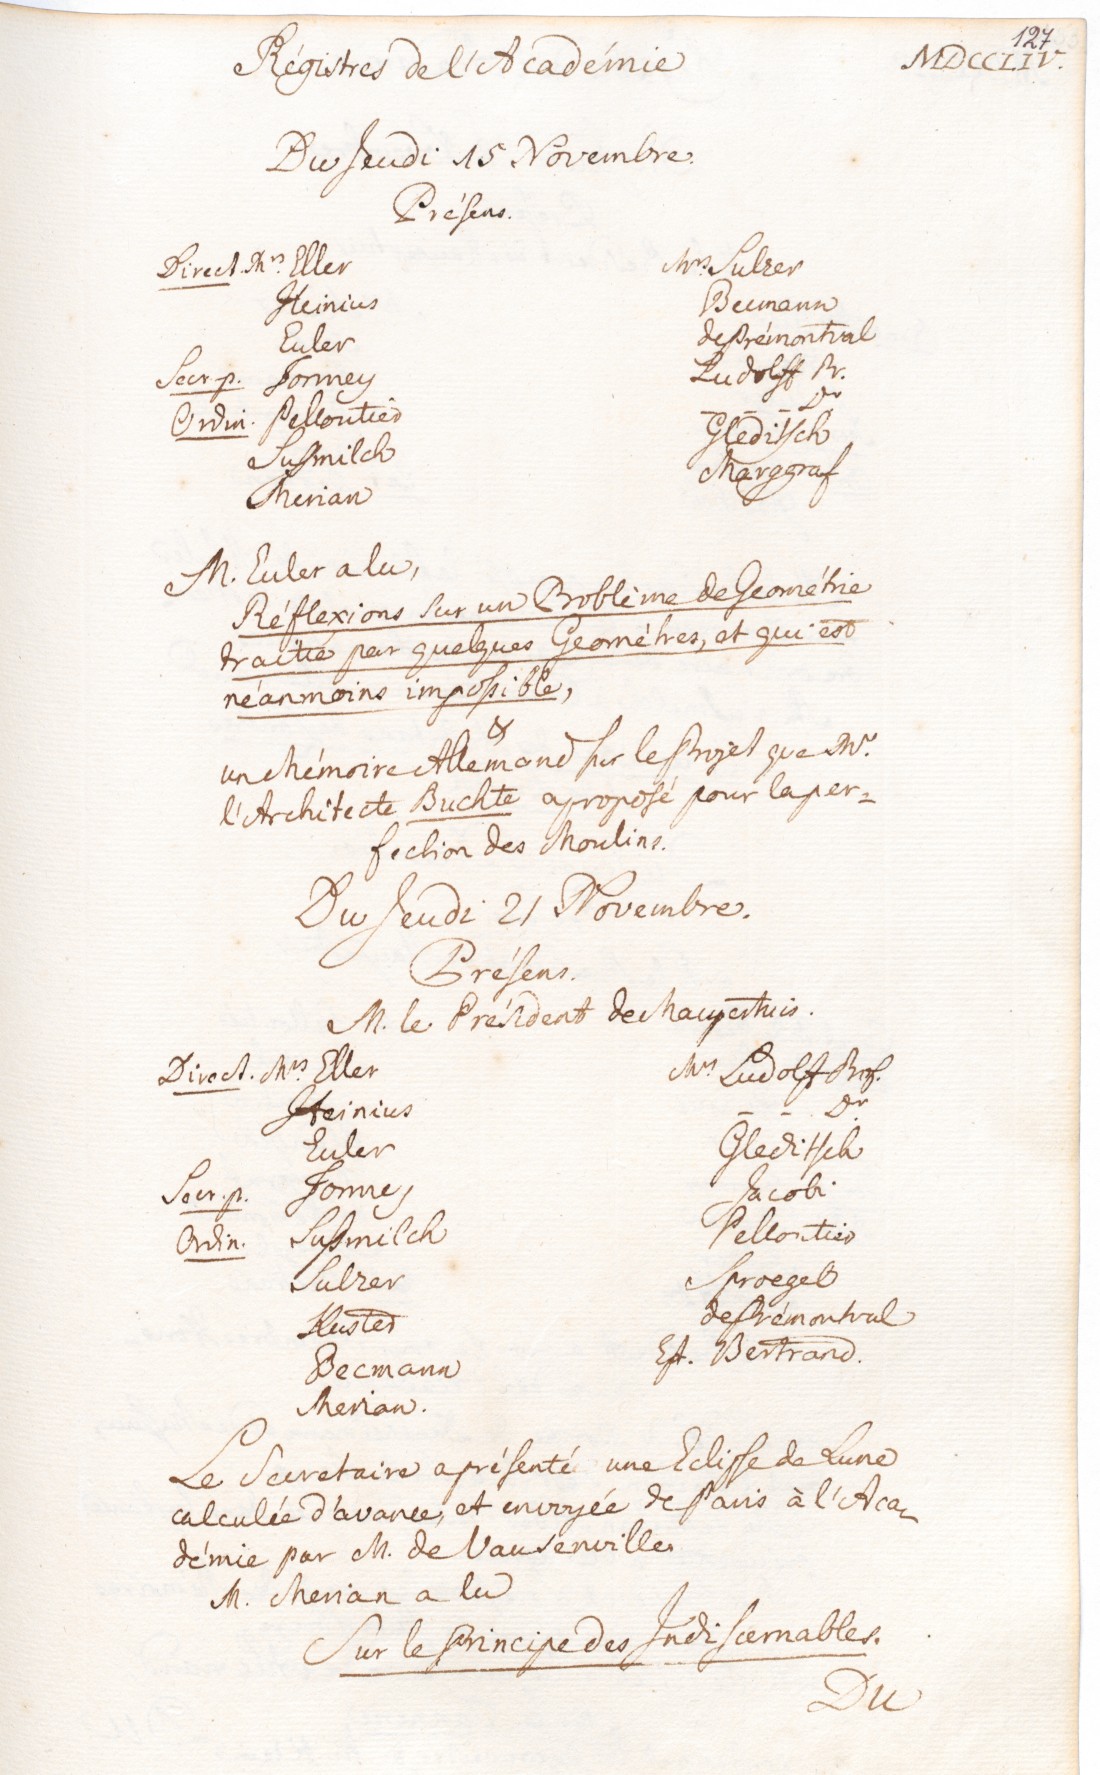 127
Régistres de l'Académie MDCCLIV.
Du Jeudi 15 Novembre.
Présens.
Direct. Mrs. Eller
Heinius
Euler
Secr. p. Formey
Ordin. Pelloutier
Sußmilch
Merian
Mrs. Sulzer
Becmann
de Prémontval
Ludolff Pr.
_ _ _ Dr
Gleditsch
Marggraf
M. Euler a lu,
Réflexions sur un Problème de Geométrie
traitté par quelques Geométres, et qui est
néanmoins impossible,
&
un Mémoire Allemand sur le Projet que Mr.
l'Architecte Buchte a proposé pour la per=
fection des Moulins.
Du Jeudi 21 Novembre.
Présens.
M. le Président de Maupertuis.
Direct. Mrs Eller
Heinius
Euler
Secr. p. Formey
Ordin. Sußmilch
Sulzer
Kuster
Becmann
Merian.
Mrs Ludolff Prof.
_ _ Dr
Gleditsch
Jacobi
Pelloutier
Sproegel
de Prémontval
Et. Bertrand.
Le Secretaire a présenté une Eclipse de Lune
calculée d'avance, et envoyée de Paris à l'Aca=
démie par M. de Vausenville.
M. Merian a lu
Sur le Principe des Indiscernables.
Du